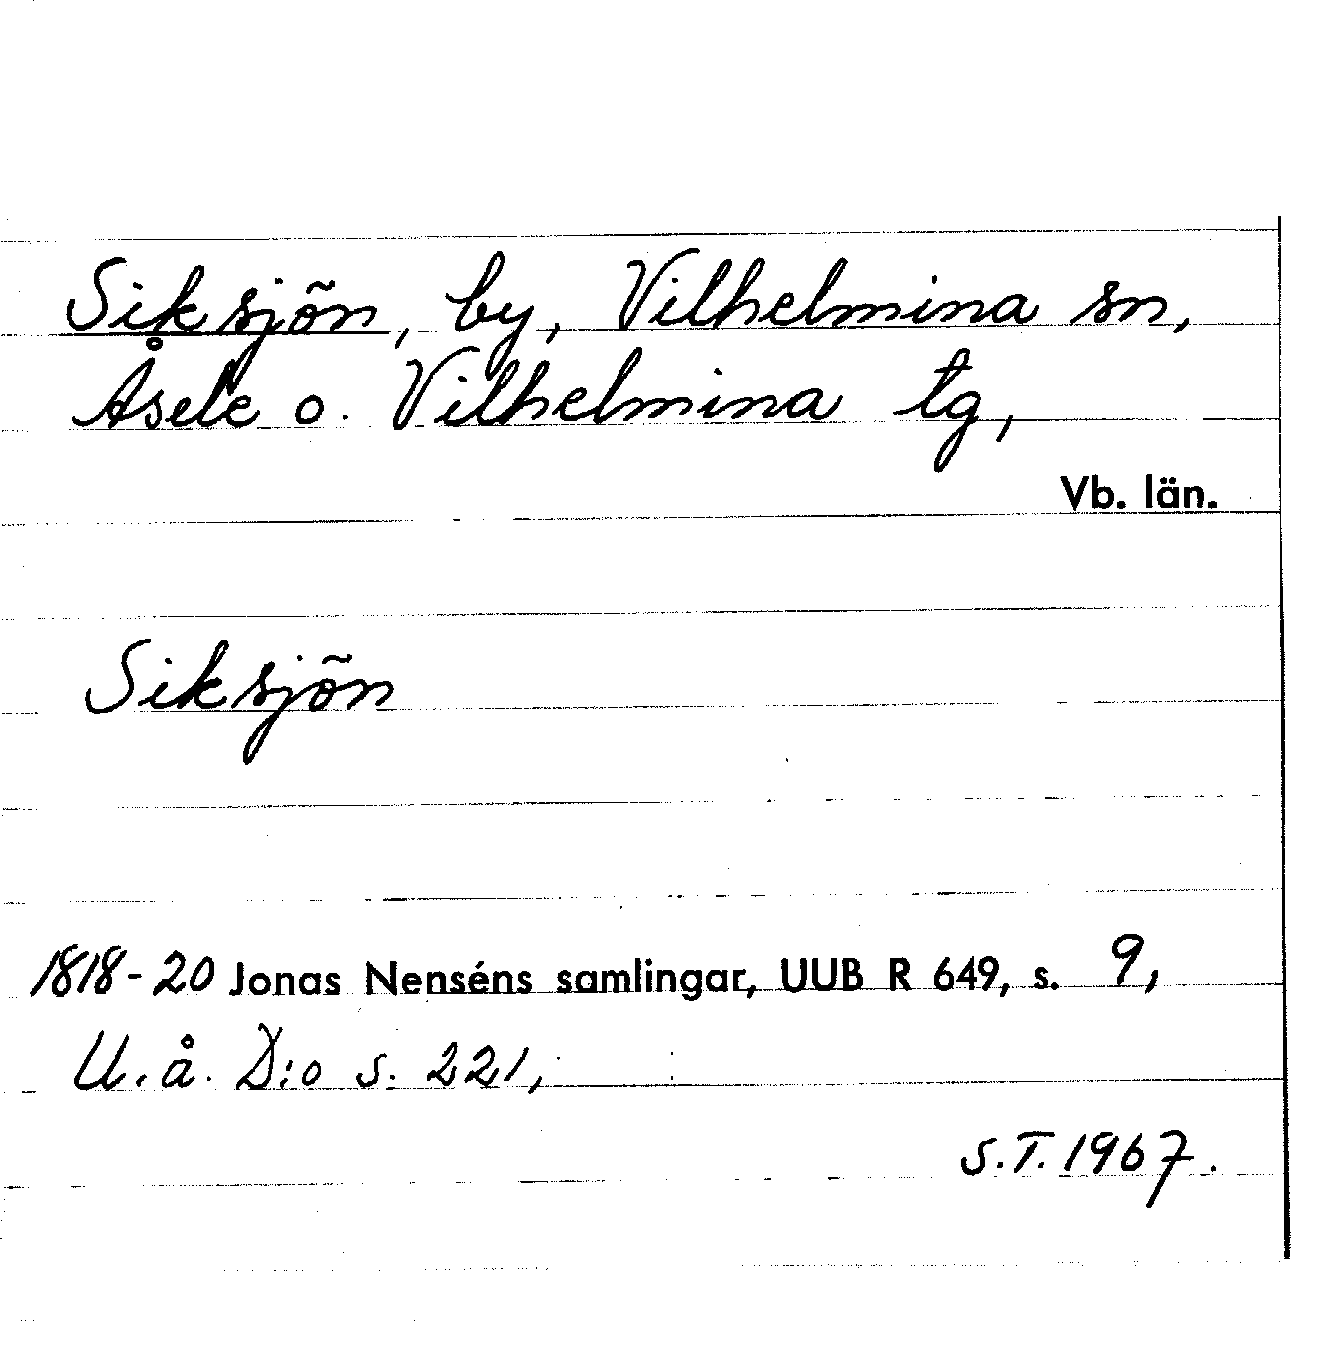 Siksjön, by, Vilhelmina sn,
Åsele o. Vilhelmina tg,
Vb. län.
Siksjön
1818-20 Jonas Nenséns samlingar, UUB R 649, s. 9,
U.å. D:o s. 221,
S.T. 1967.